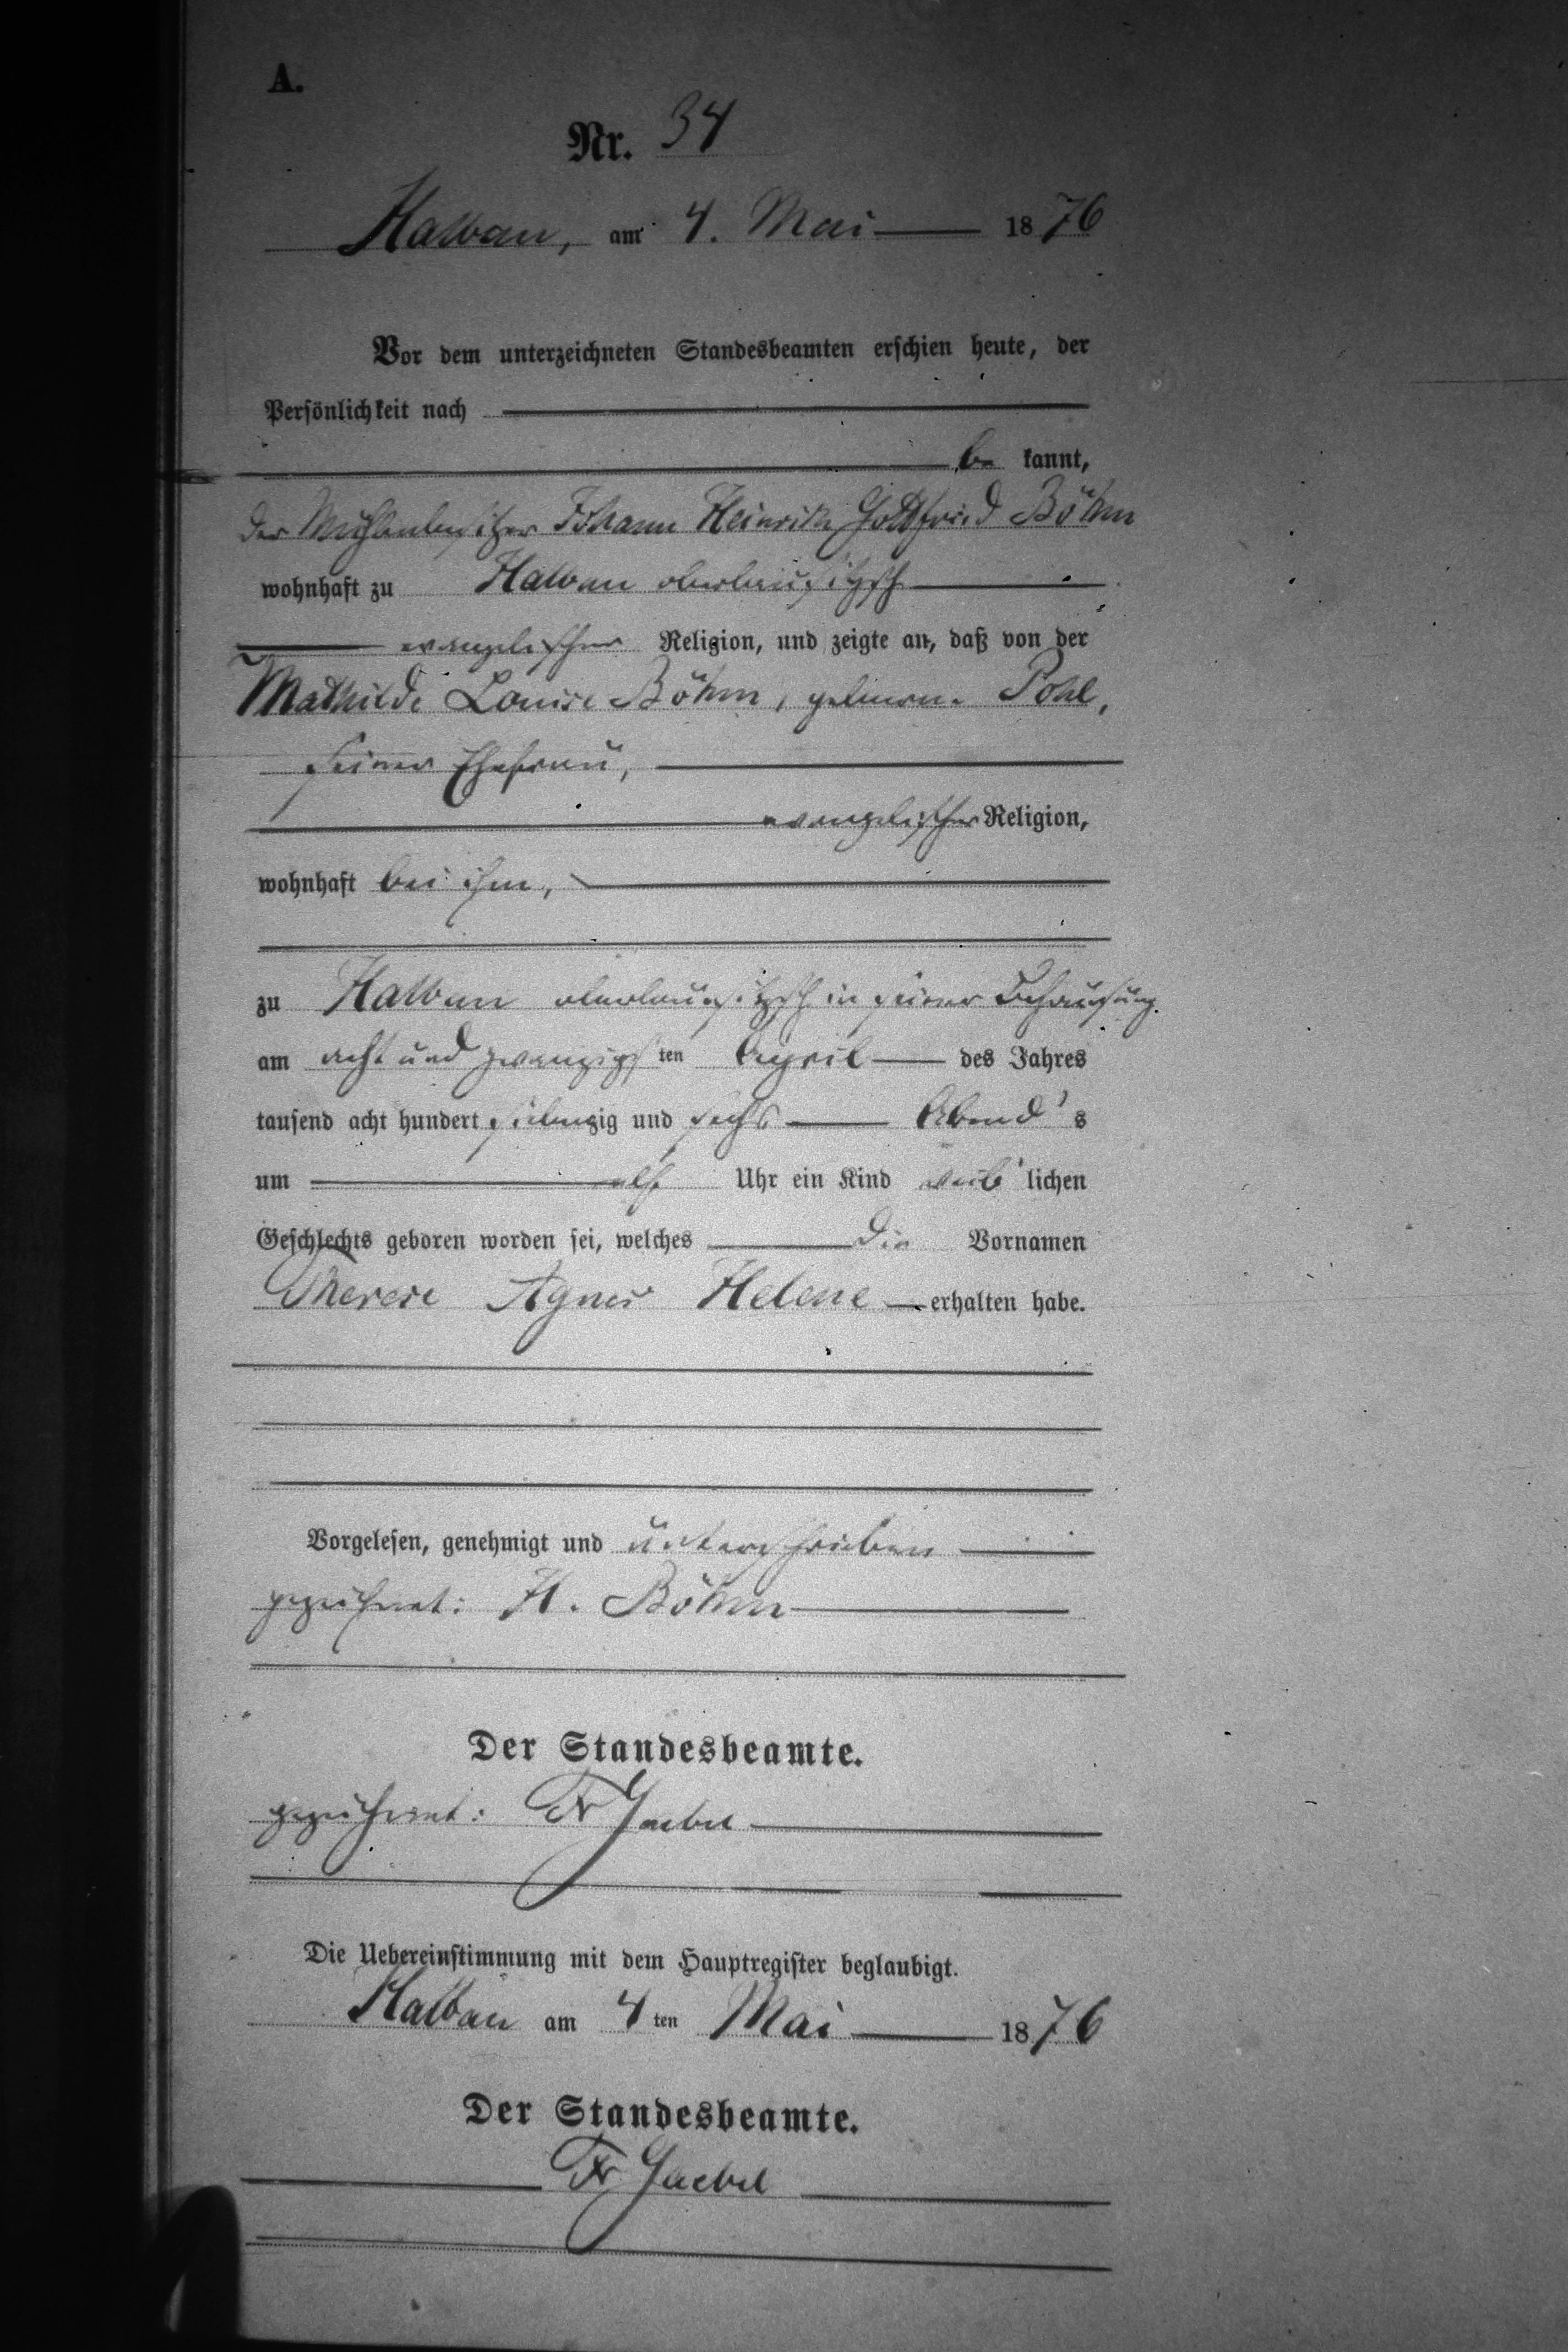 A.
Nr. 34
Halbau, am 4. Mai 1876
Vor dem unterzeichneten Standesbeamten erschien heute, der
Persönlichkeit nach
be kannt,
der Mühlenbesitzer Johann Heinrich Gottfried Böhm
wohnhaft zu Halbau oberlausitzsch
evangelischer Religion, und zeigte an, daß von der
Mathilde Louise Böhm, geborne Pohl,
seiner Ehefrau,
evangelischer Religion,
wohnhaft bei ihm,
zu Halbau oberlausitzsch in seiner Behausung
am acht und zwanzigsten April des Jahres
tausend acht hundert siebenzig und sechs Abend's
um elf Uhr ein Kind weiblichen
Geschlechts geboren worden sei, welches die Vornamen
Therese Agnes Helene erhalten habe.
Vorgelesen, genehmigt und unterschrieben
gezeichnet: H. Böhm
Der Standesbeamte.
gezeichnet: Fr Gaebel
Die Uebereinstimmung mit dem Hauptregister beglaubigt.
Halbau am 4ten Mai 1876
Der Standesbeamte.
Fr Gaebel